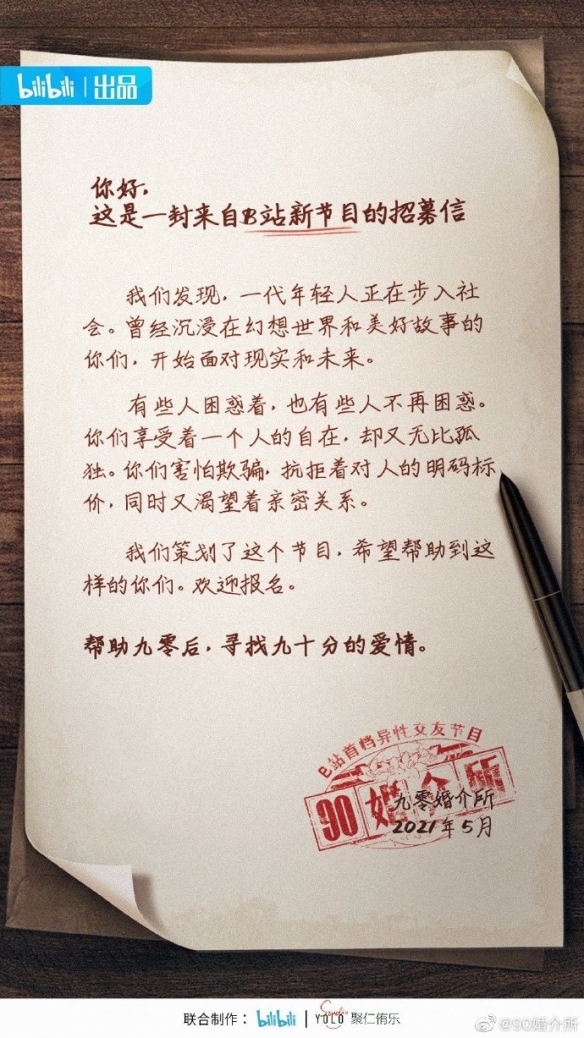 bilibili 出品
你好，
这是一封来自B站新节目的招募信
我们发现，一代年轻人正在步入社
会。曾经沉浸在幻想世界和美好故事的
你们，开始面对现实和未来。
有些人困惑着，也有些人不再困惑。
你们享受着一个人的自在，却又无比孤
独。你们害怕欺骗，抗拒着对人的明码标
价，同时又渴望着亲密关系。
我们策划了这个节目，希望帮助到这
样的你们。欢迎报名。
帮助九零后，寻找九十分的爱情。
B站首档异性交友节目
90婚介所
九零婚介所
2021年5月
联合制作： bilibili | Studio YOLO 聚仁侑乐
@90婚介所